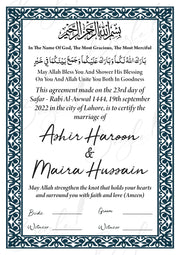 بِسْمِ اللهِ الرَّحْمٰنِ الرَّحِيْمِ
In The Name Of God, The Most Gracious, The Most Merciful
بَارَكَ اللهُ لَكُمَا وَبَارَكَ عَلَيْكُمَا وَجَمَعَ بَيْنَكُمَا فِي خَيْرٍ
May Allah Bless You And Shower His Blessing
On You And Allah Unite You Both In Goodness
This agreement made on the 23rd day of
Safar - Rabi Al-Awwal 1444, 19th september
2022 in the city of Lahore, is to certify the
marriage of
Ashir Haroon
&
Maira Hussain
May Allah strengthen the knot that holds your hearts
and surround you with faith and love (Ameen)
Bride: Groom:
Witness: Witness: